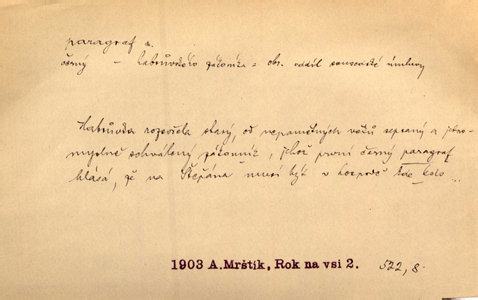 paragraf m.
černý – Habrůvského zákoníka = obr. oddíl sousedské úmluvy
Habrůvka rozevřela starý, od nepamětných věků sepsaný a jedno-
myslně schválený zákonník, jehož první černý paragraf
hlásá, že na Štěpána musí být v hospodě
1903 A.Mrštík, Rok na vsi 2. 522, 8